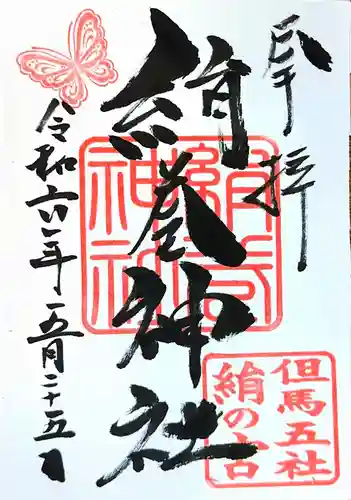 奉拝
絹巻神社
令和六年五月二十五日
絹巻神社
但馬五社
絹の宮